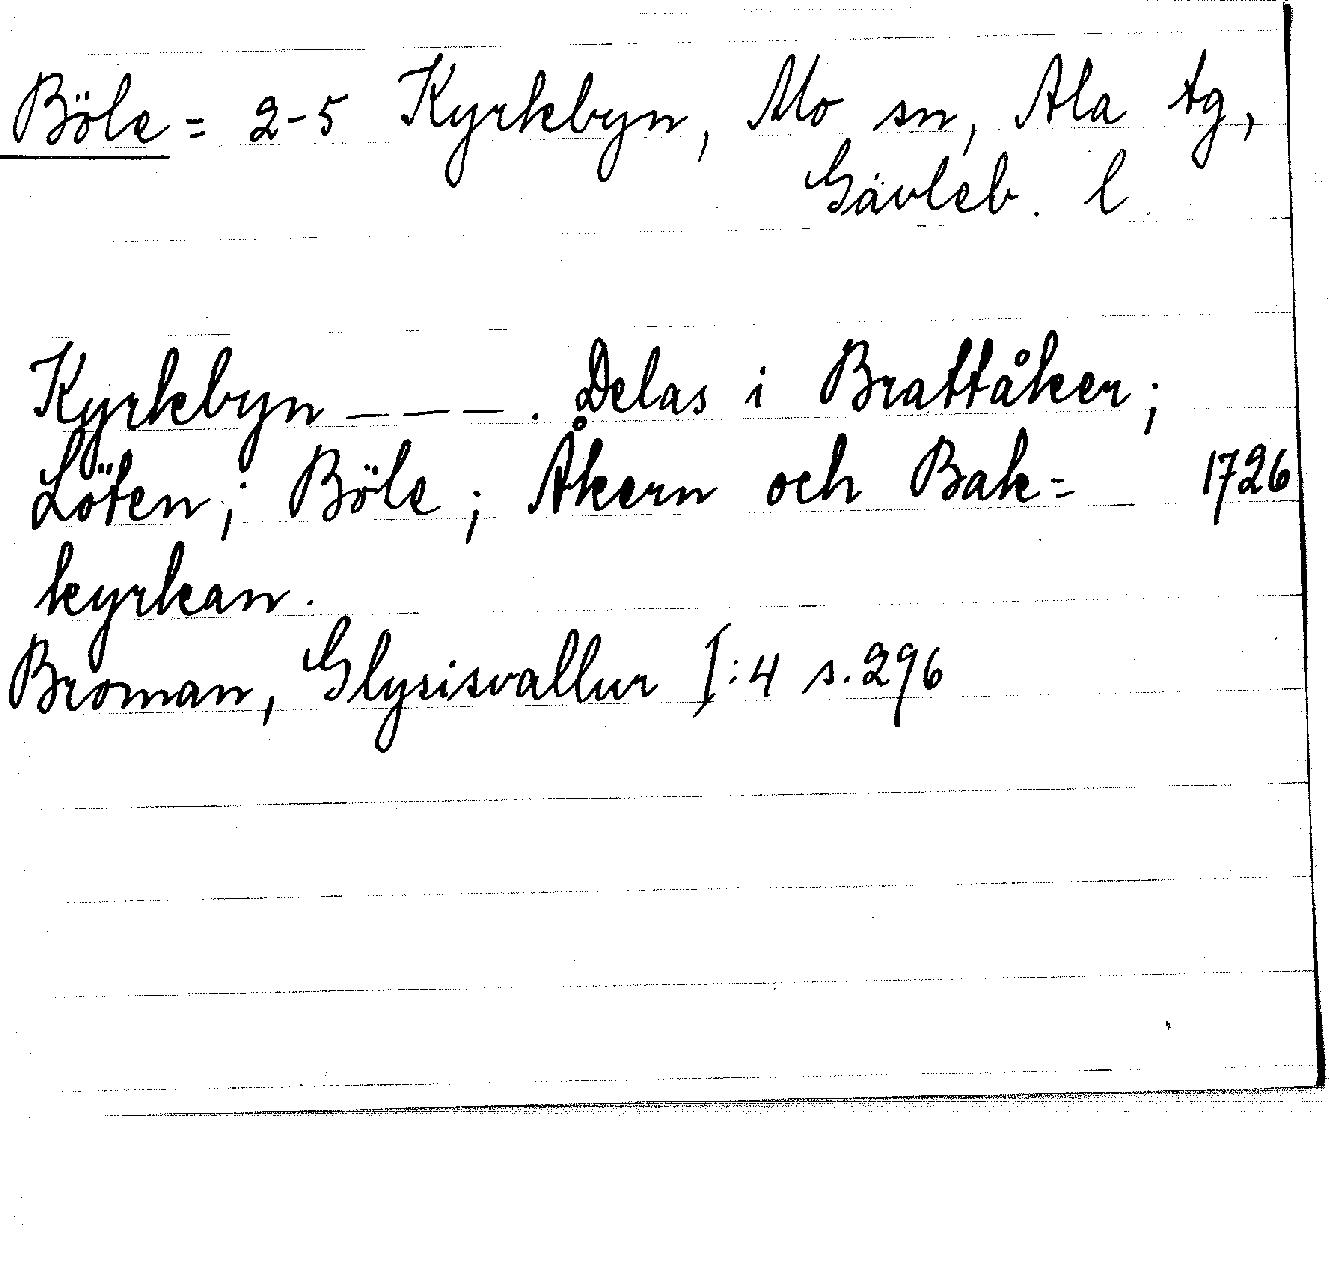 Böle = 2-5 Kyrkbyn, Mo sn, Ala tg,
Gävleb. l.
Kyrkbyn – – – . Delas i Brattåker;
Löten; Böle; Åkern och Bak= 1726
kyrkan.
Broman, Glysisvallur I:4 s. 296